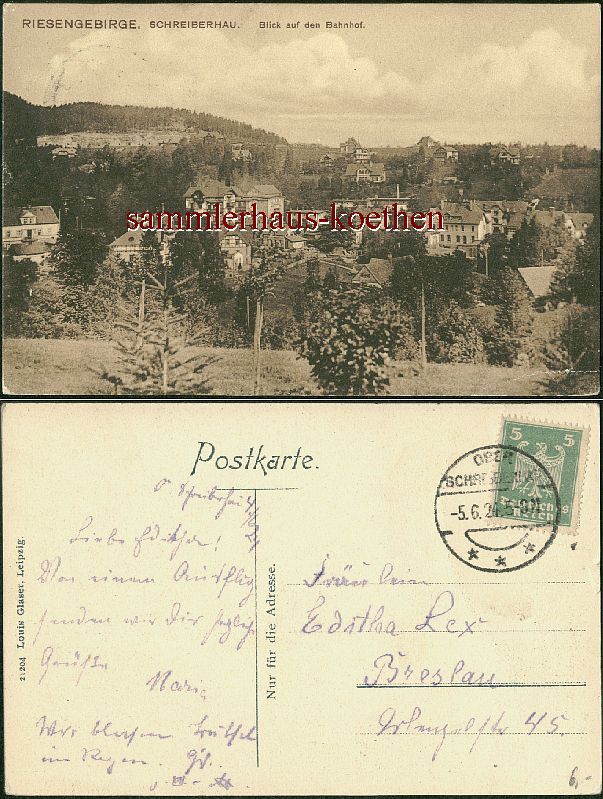 RIESENGEBIRGE. SCHREIBERHAU. Blick auf den Bahnhof.
sammlerhaus-koethen
Postkarte.
5 5
OBER
SCHREIBERHAU
-5.6.24
Deutsches
Reich
O Schreiberhau
Liebe Editha!
Von einem Ausflug
senden wir Dir
Grüße
Maria
Wir blasen Trübsal
im Regen.
21204 Louis Glaser, Leipzig.
Nur für die Adresse.
Fräulein
Editha Lex
Breslau
45.
6,-